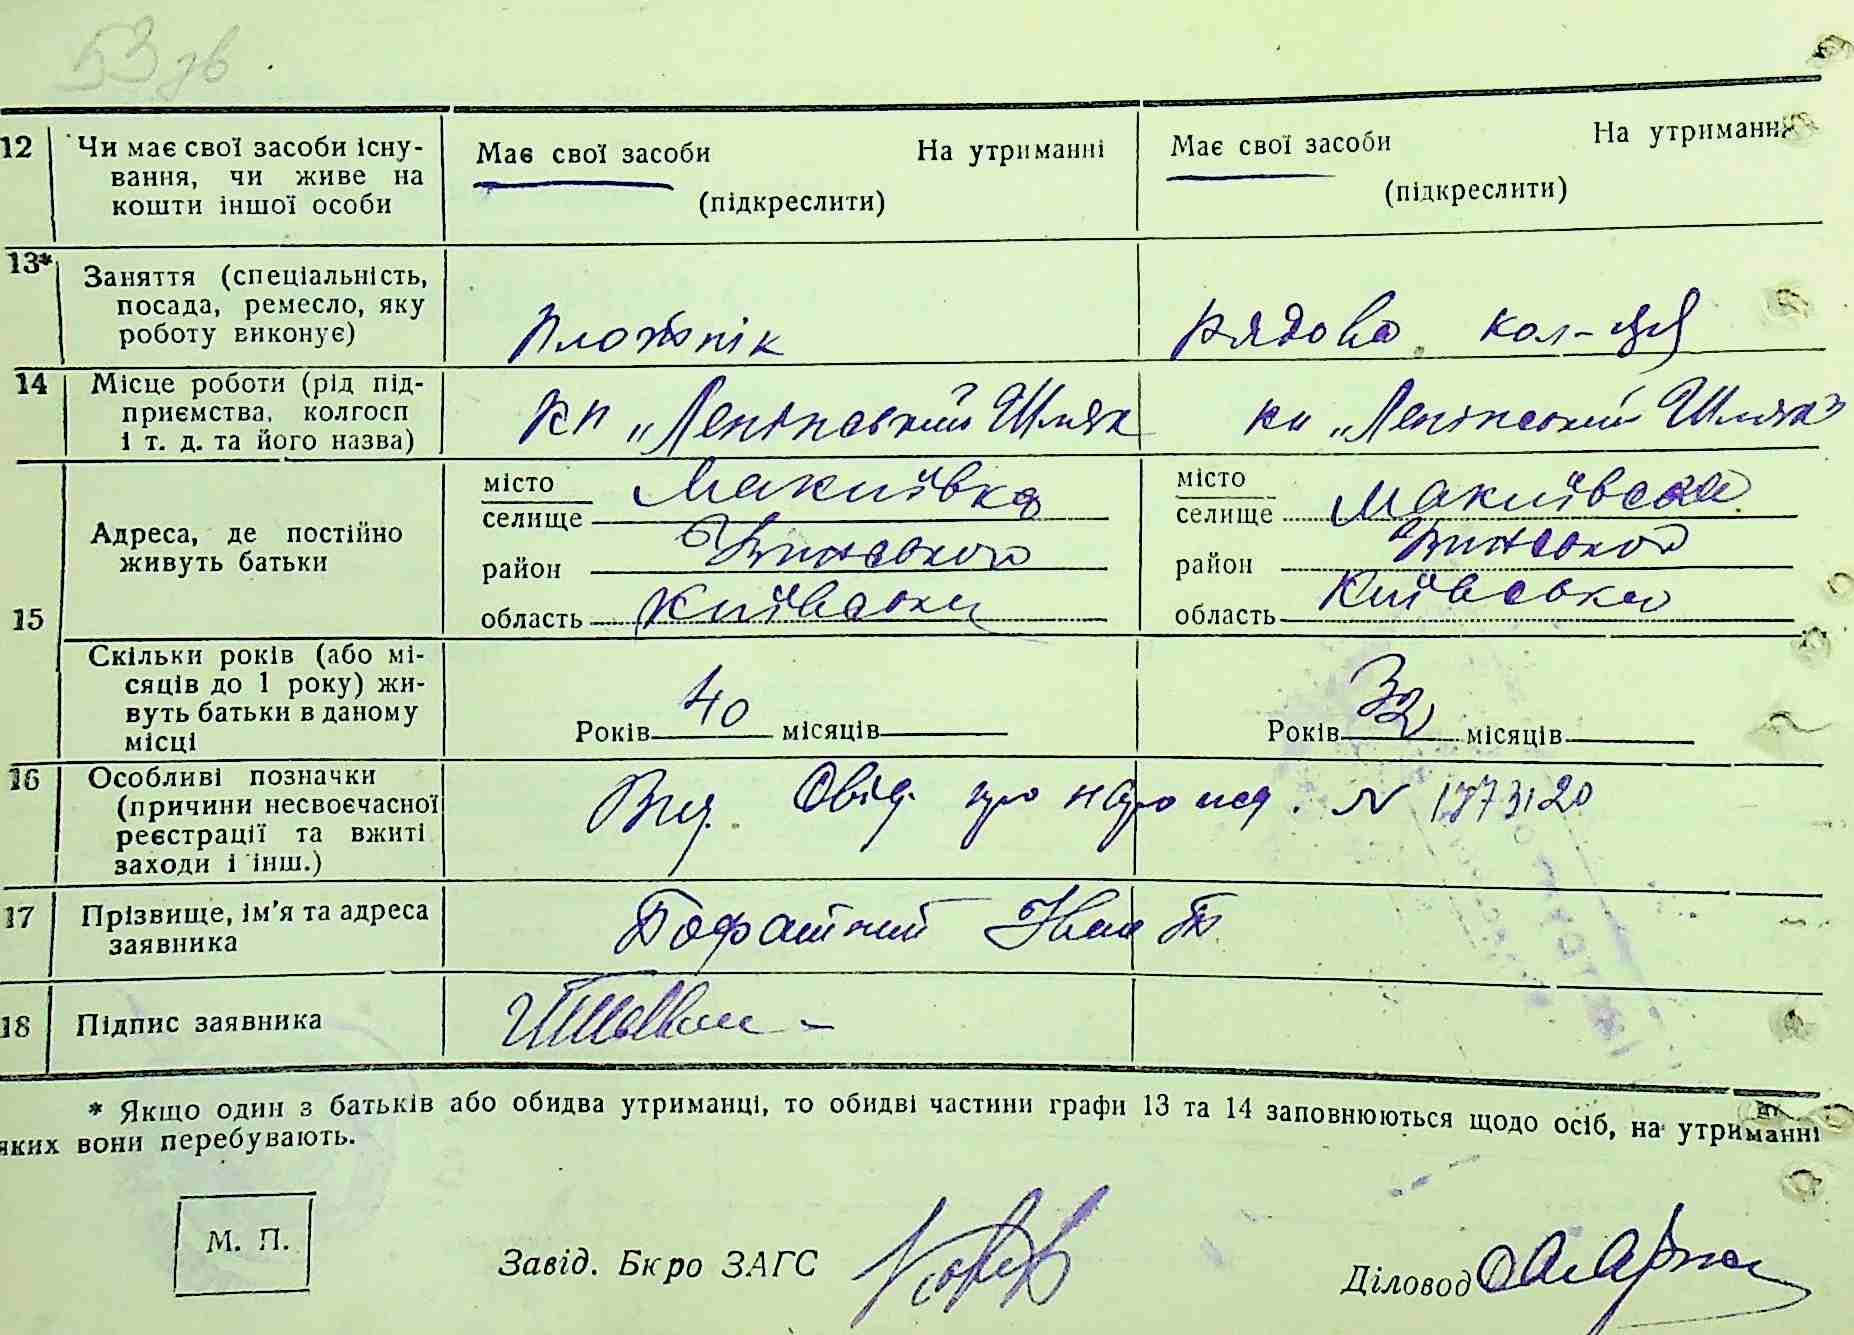 53 зв
12 Чи має свої засоби існу- Має свої засоби На утриманні Має свої засоби На утриманні
вання, чи живе на
кошти іншої особи (підкреслити) (підкреслити)
13* Заняття (спеціальність,
посада, ремесло, яку
роботу виконує) Плотнік рядова кол-ця
14 Місце роботи (рід під-
приємства, колгосп КП „Ленінський Шлях кп „Ленінський Шлях"
і т. д. та його назва)
місто Макиївка місто Макиївка
селище селище
Адреса, де постійно
живуть батьки район район
15 область Київська область Київська
Скільки років (або мі-
сяців до 1 року) жи-
вуть батьки в даному Років 40 місяців Років 32 місяців
місці
16 Особливі позначки
(причини несвоєчасної Вид. Свід. про народ. N 1773120
реєстрації та вжиті
заходи і інш.)
17 Прізвище, ім'я та адреса Іван
заявника
18 Підпис заявника
* Якщо один з батьків або обидва утриманці, то обидві частини графи 13 та 14 заповнюються щодо осіб, на утриманні
яких вони перебувають.
М. П.
Завід. Бюро ЗАГС
Діловод